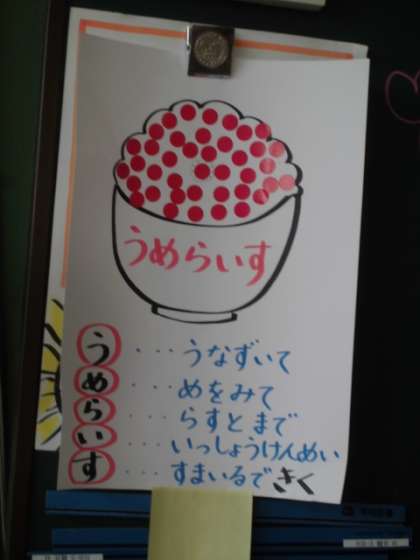 うめらいす
う・・・うなずいて
め・・・めをみて
ら・・・らすとまで
い・・・いっしょうけんめい
す・・・すまいるできく